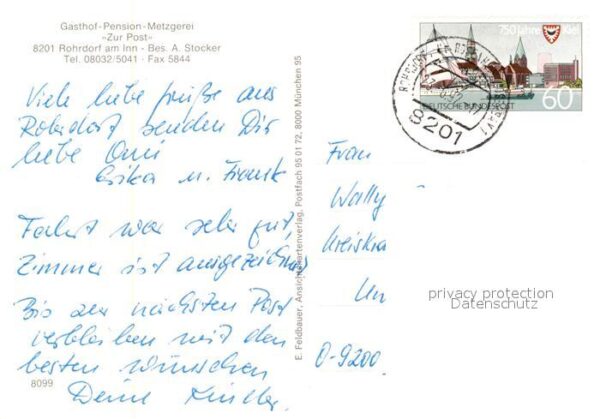 Gasthof-Pension-Metzgerei
»Zur Post«
8201 Rohrdorf am Inn - Bes. A. Stocker
Tel. 08032/5041 · Fax 5844
Viele liebe Grüße aus
Rohrdorf senden Dir
liebe Omi
Erika u. Frank
Fahrt war sehr gut,
Zimmer ist ausgezeichnet
Bis zur nächsten Post
verbleiben mit den
besten Wünschen
Deine Kinder.
8099
E. Feldbauer, Ansichtskartenverlag, Postfach 95 01 72, 8000 München 95
750 Jahre Kiel
DEUTSCHE BUNDESPOST
60
8201
Frau
Wally
O-9200
privacy protection
Datenschutz